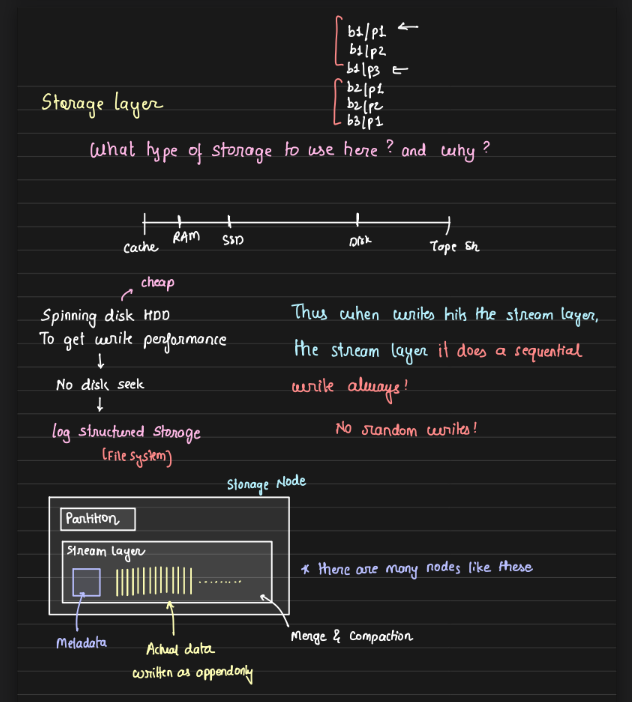 b1/p1
b1/p2
b1/p3
b2/p1
b2/p2
b3/p1
Storage layer
What type of storage to use here? and why?
Cache
RAM
SSD
Disk
Tape Sh
cheap
Spinning disk HDD
To get write performance
No disk seek
log structured Storage
(File System)
Thus when writes hits the stream layer,
the stream layer it does a sequential
write always!
No random writes!
Storage Node
Partition
Stream layer
* there are many nodes like these
Metadata
Actual data
written as appendonly
Merge & Compaction